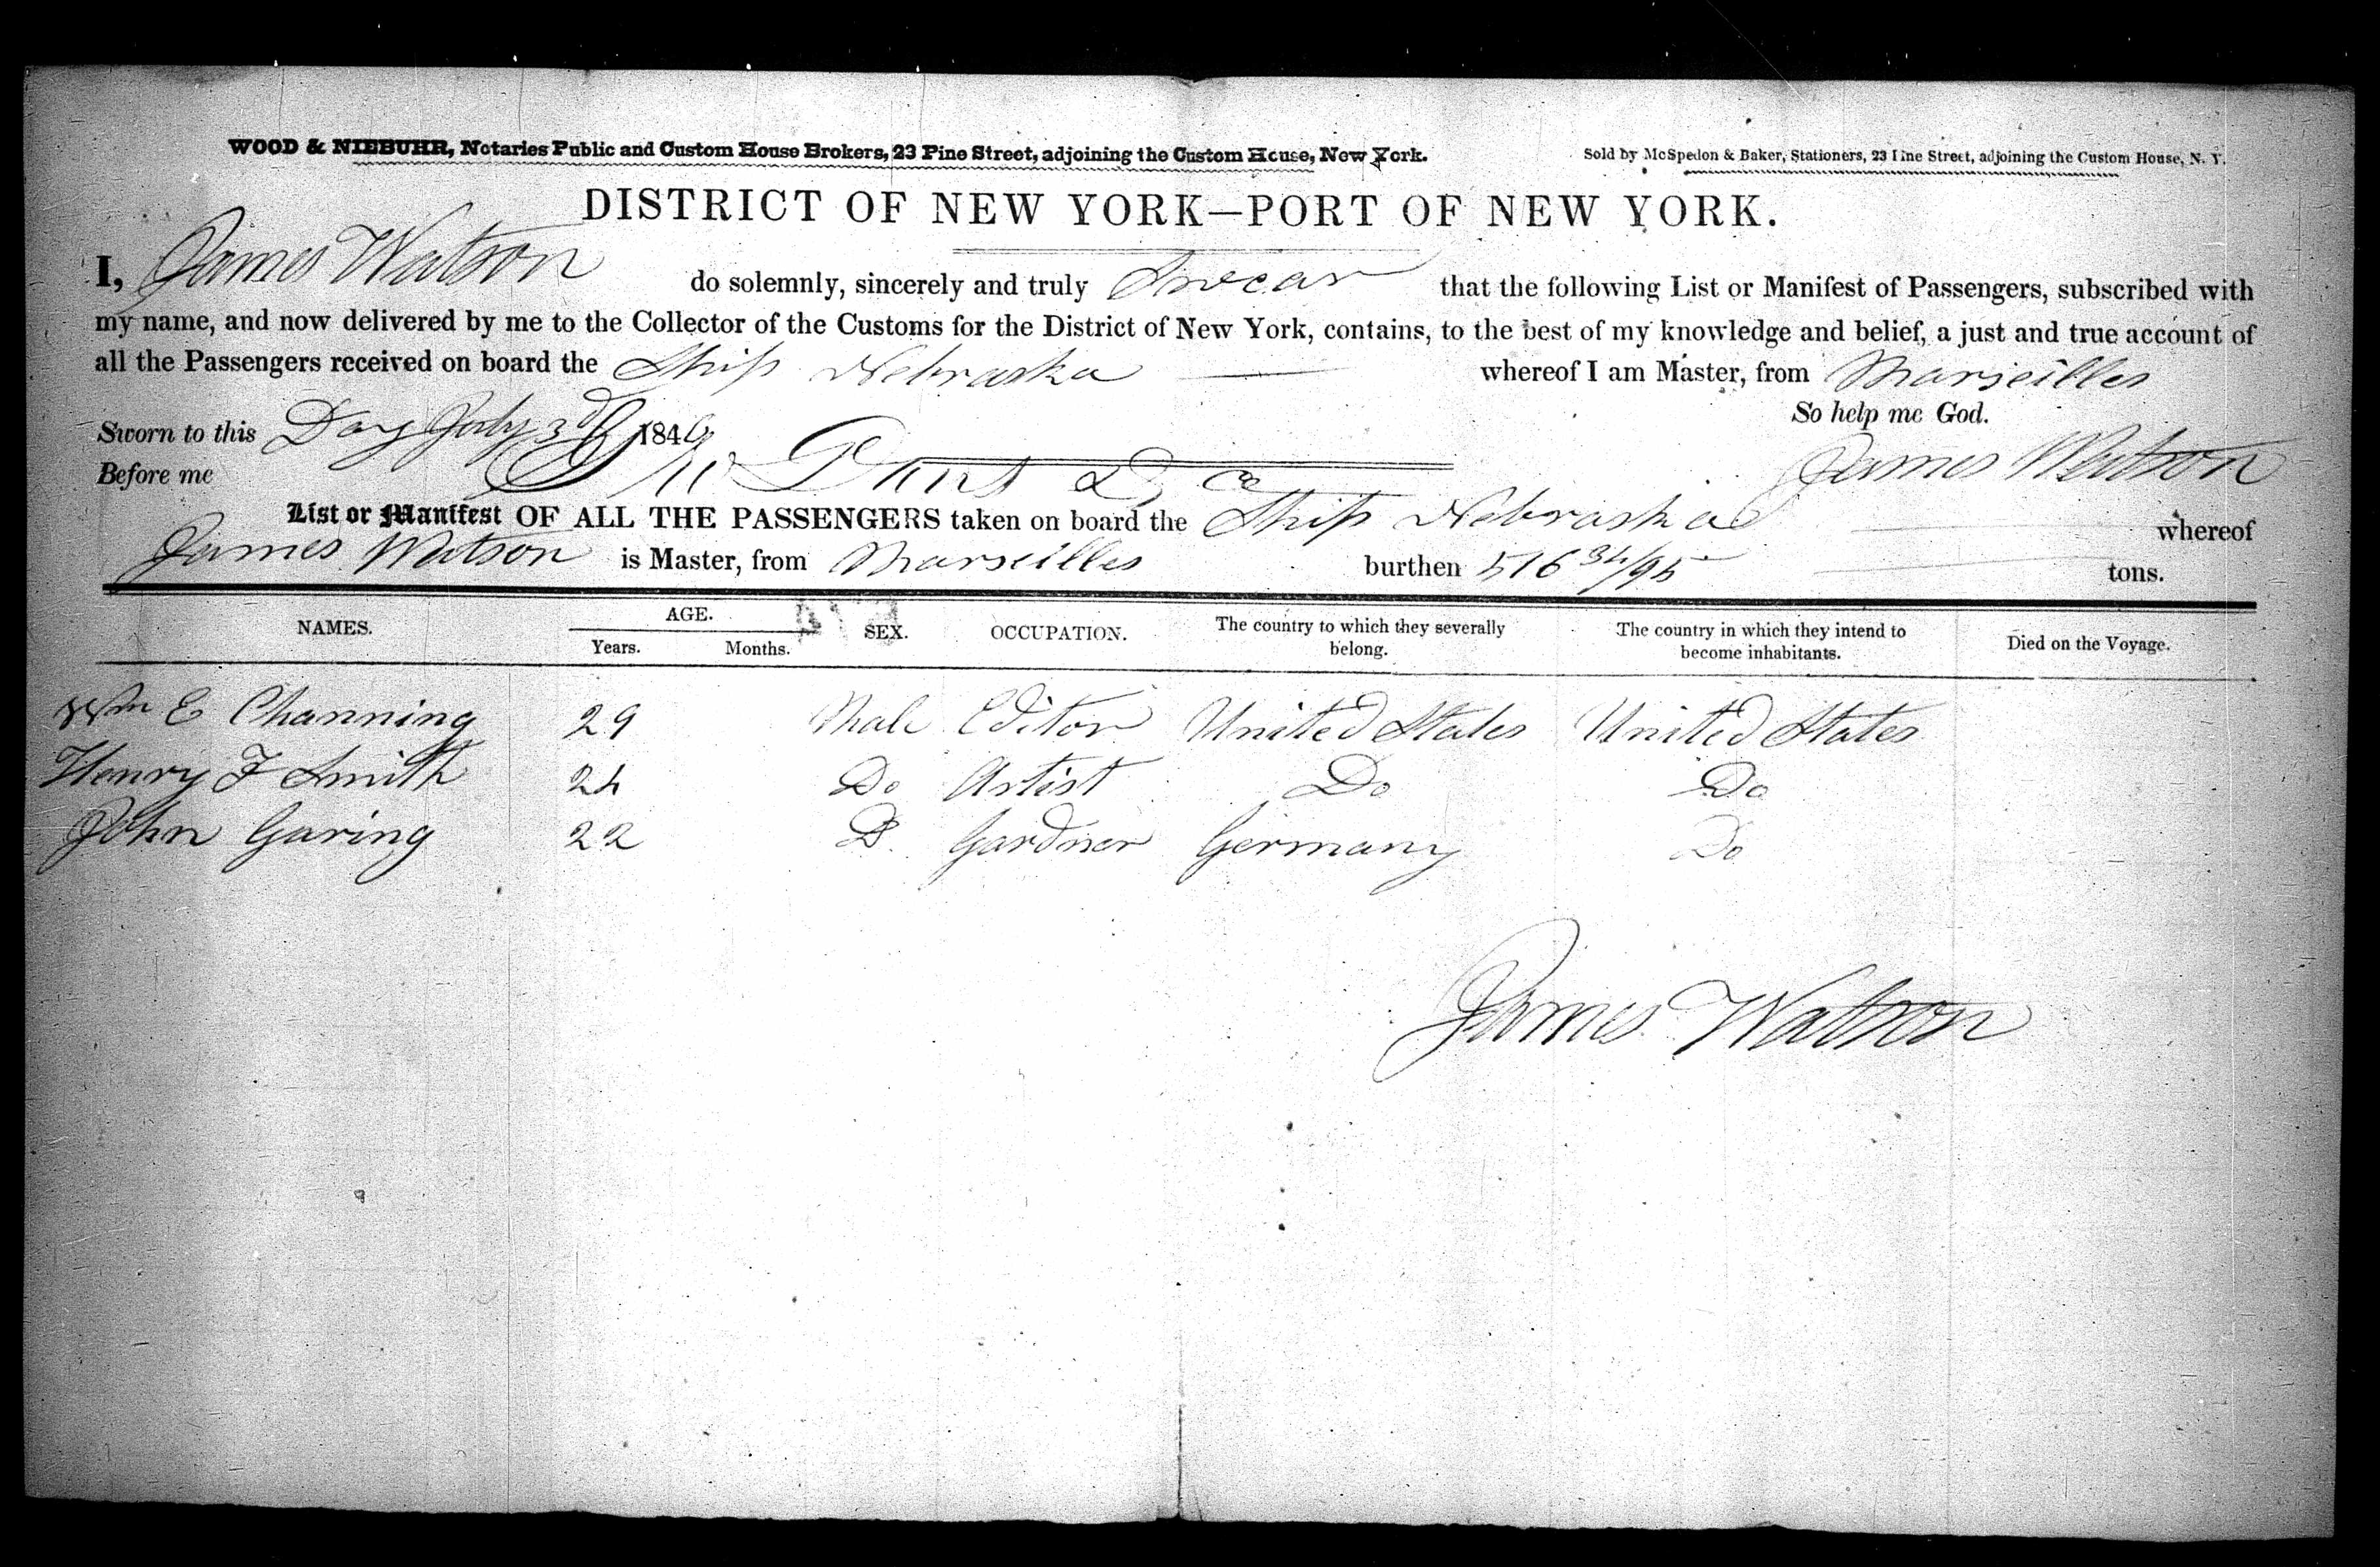 WOOD & NIEBUHR, Notaries Public and Custom House Brokers, 23 Pine Street, adjoining the Custom House, New York. Sold by McSpedon & Baker, Stationers, 23 Pine Street, adjoining the Custom House, N. Y.
DISTRICT OF NEW YORK—PORT OF NEW YORK.
I, James Watson do solemnly, sincerely and truly Swear that the following List or Manifest of Passengers, subscribed with
my name, and now delivered by me to the Collector of the Customs for the District of New York, contains, to the best of my knowledge and belief, a just and true account of
all the Passengers received on board the Ship Nebraska whereof I am Master, from Marseilles
So help me God.
Sworn to this Day July 3d 1846
James Watson
Before me
List or Manifest OF ALL THE PASSENGERS taken on board the Ship Nebraska whereof
James Watson is Master, from Marseilles burthen 516 34/95 tons.
NAMES. AGE. Years. Months. SEX. OCCUPATION. The country to which they severally belong. The country in which they intend to become inhabitants. Died on the Voyage.
Wm E Channing 29 Male Editor United States United States
Henry F Smith 24 Do Artist Do Do
John Garing 22 D. Gardner Germany Do
James Watson